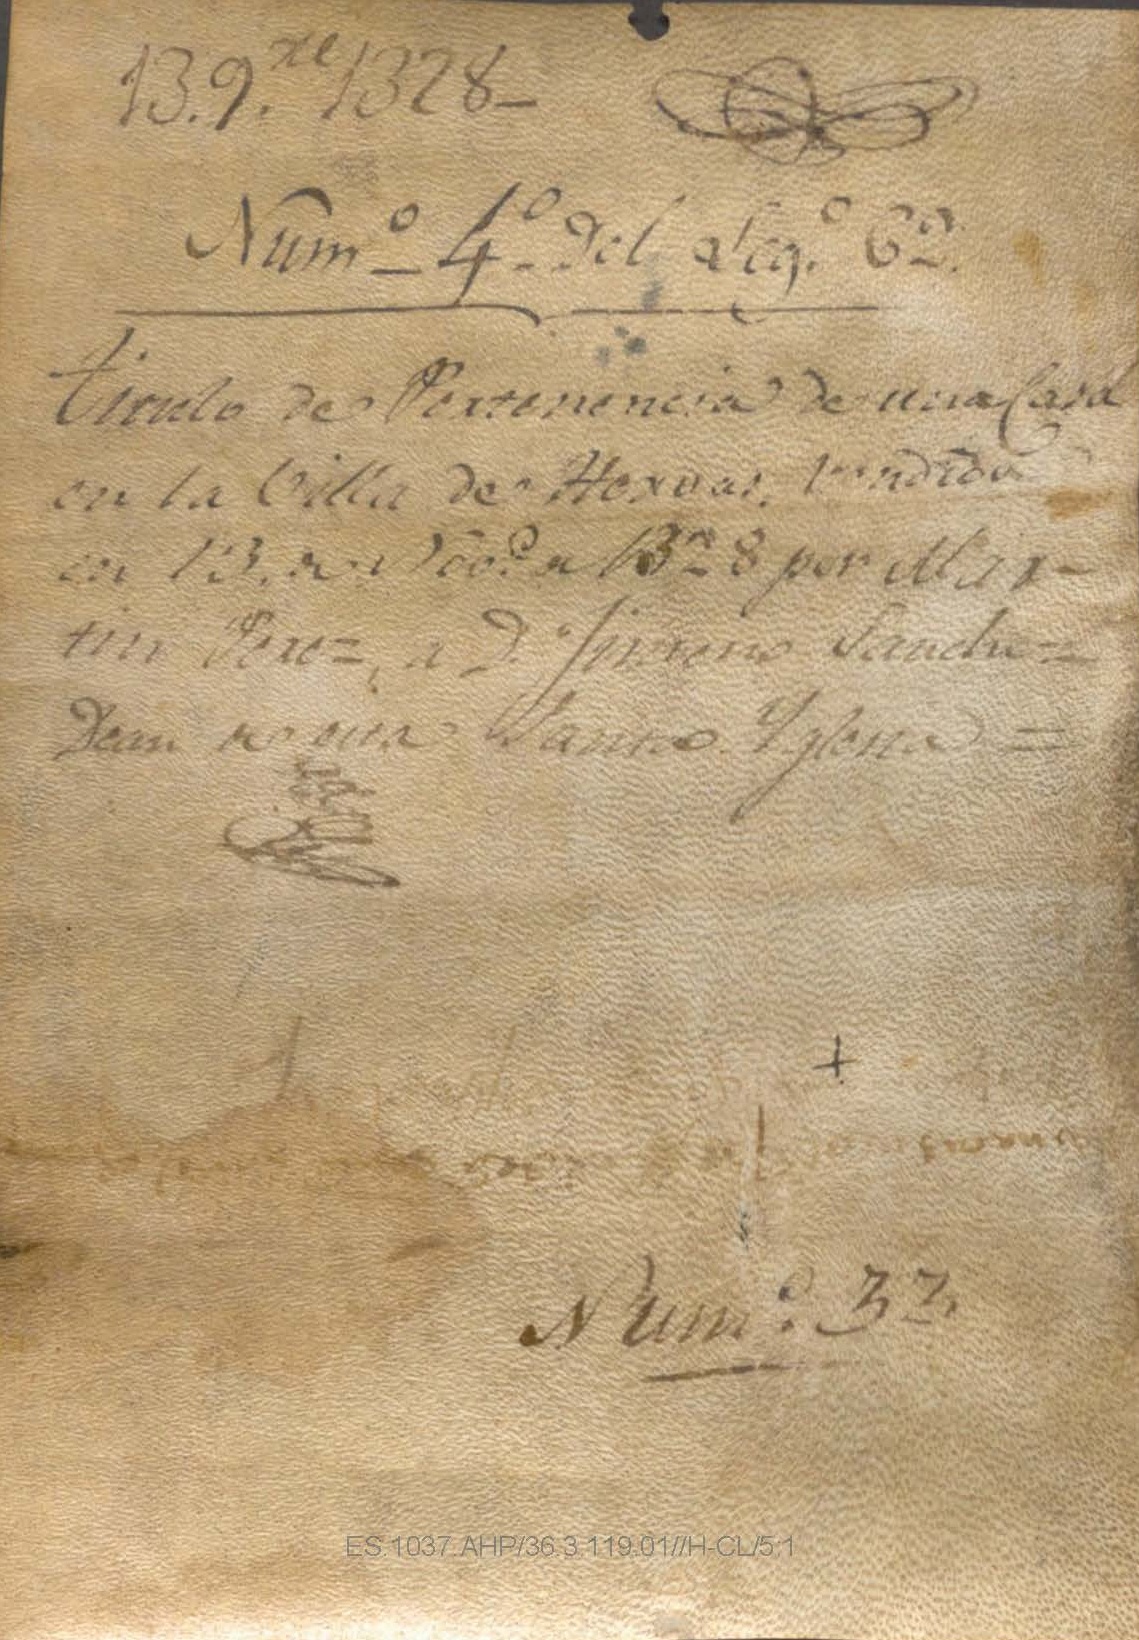 13. 9.xe 1328
Numo 4o del Lego 6o.
titulo de Pertenencia de una Casa
en la Villa de Hervas, vendida
en 13. de 1328 por Mar-
tin Perez, a D.n Sanchez
Dean de esta Santa Yglesia =
+
Numo 33.
ES.1037.AHP/36.3.119.01//H-CL/5:1